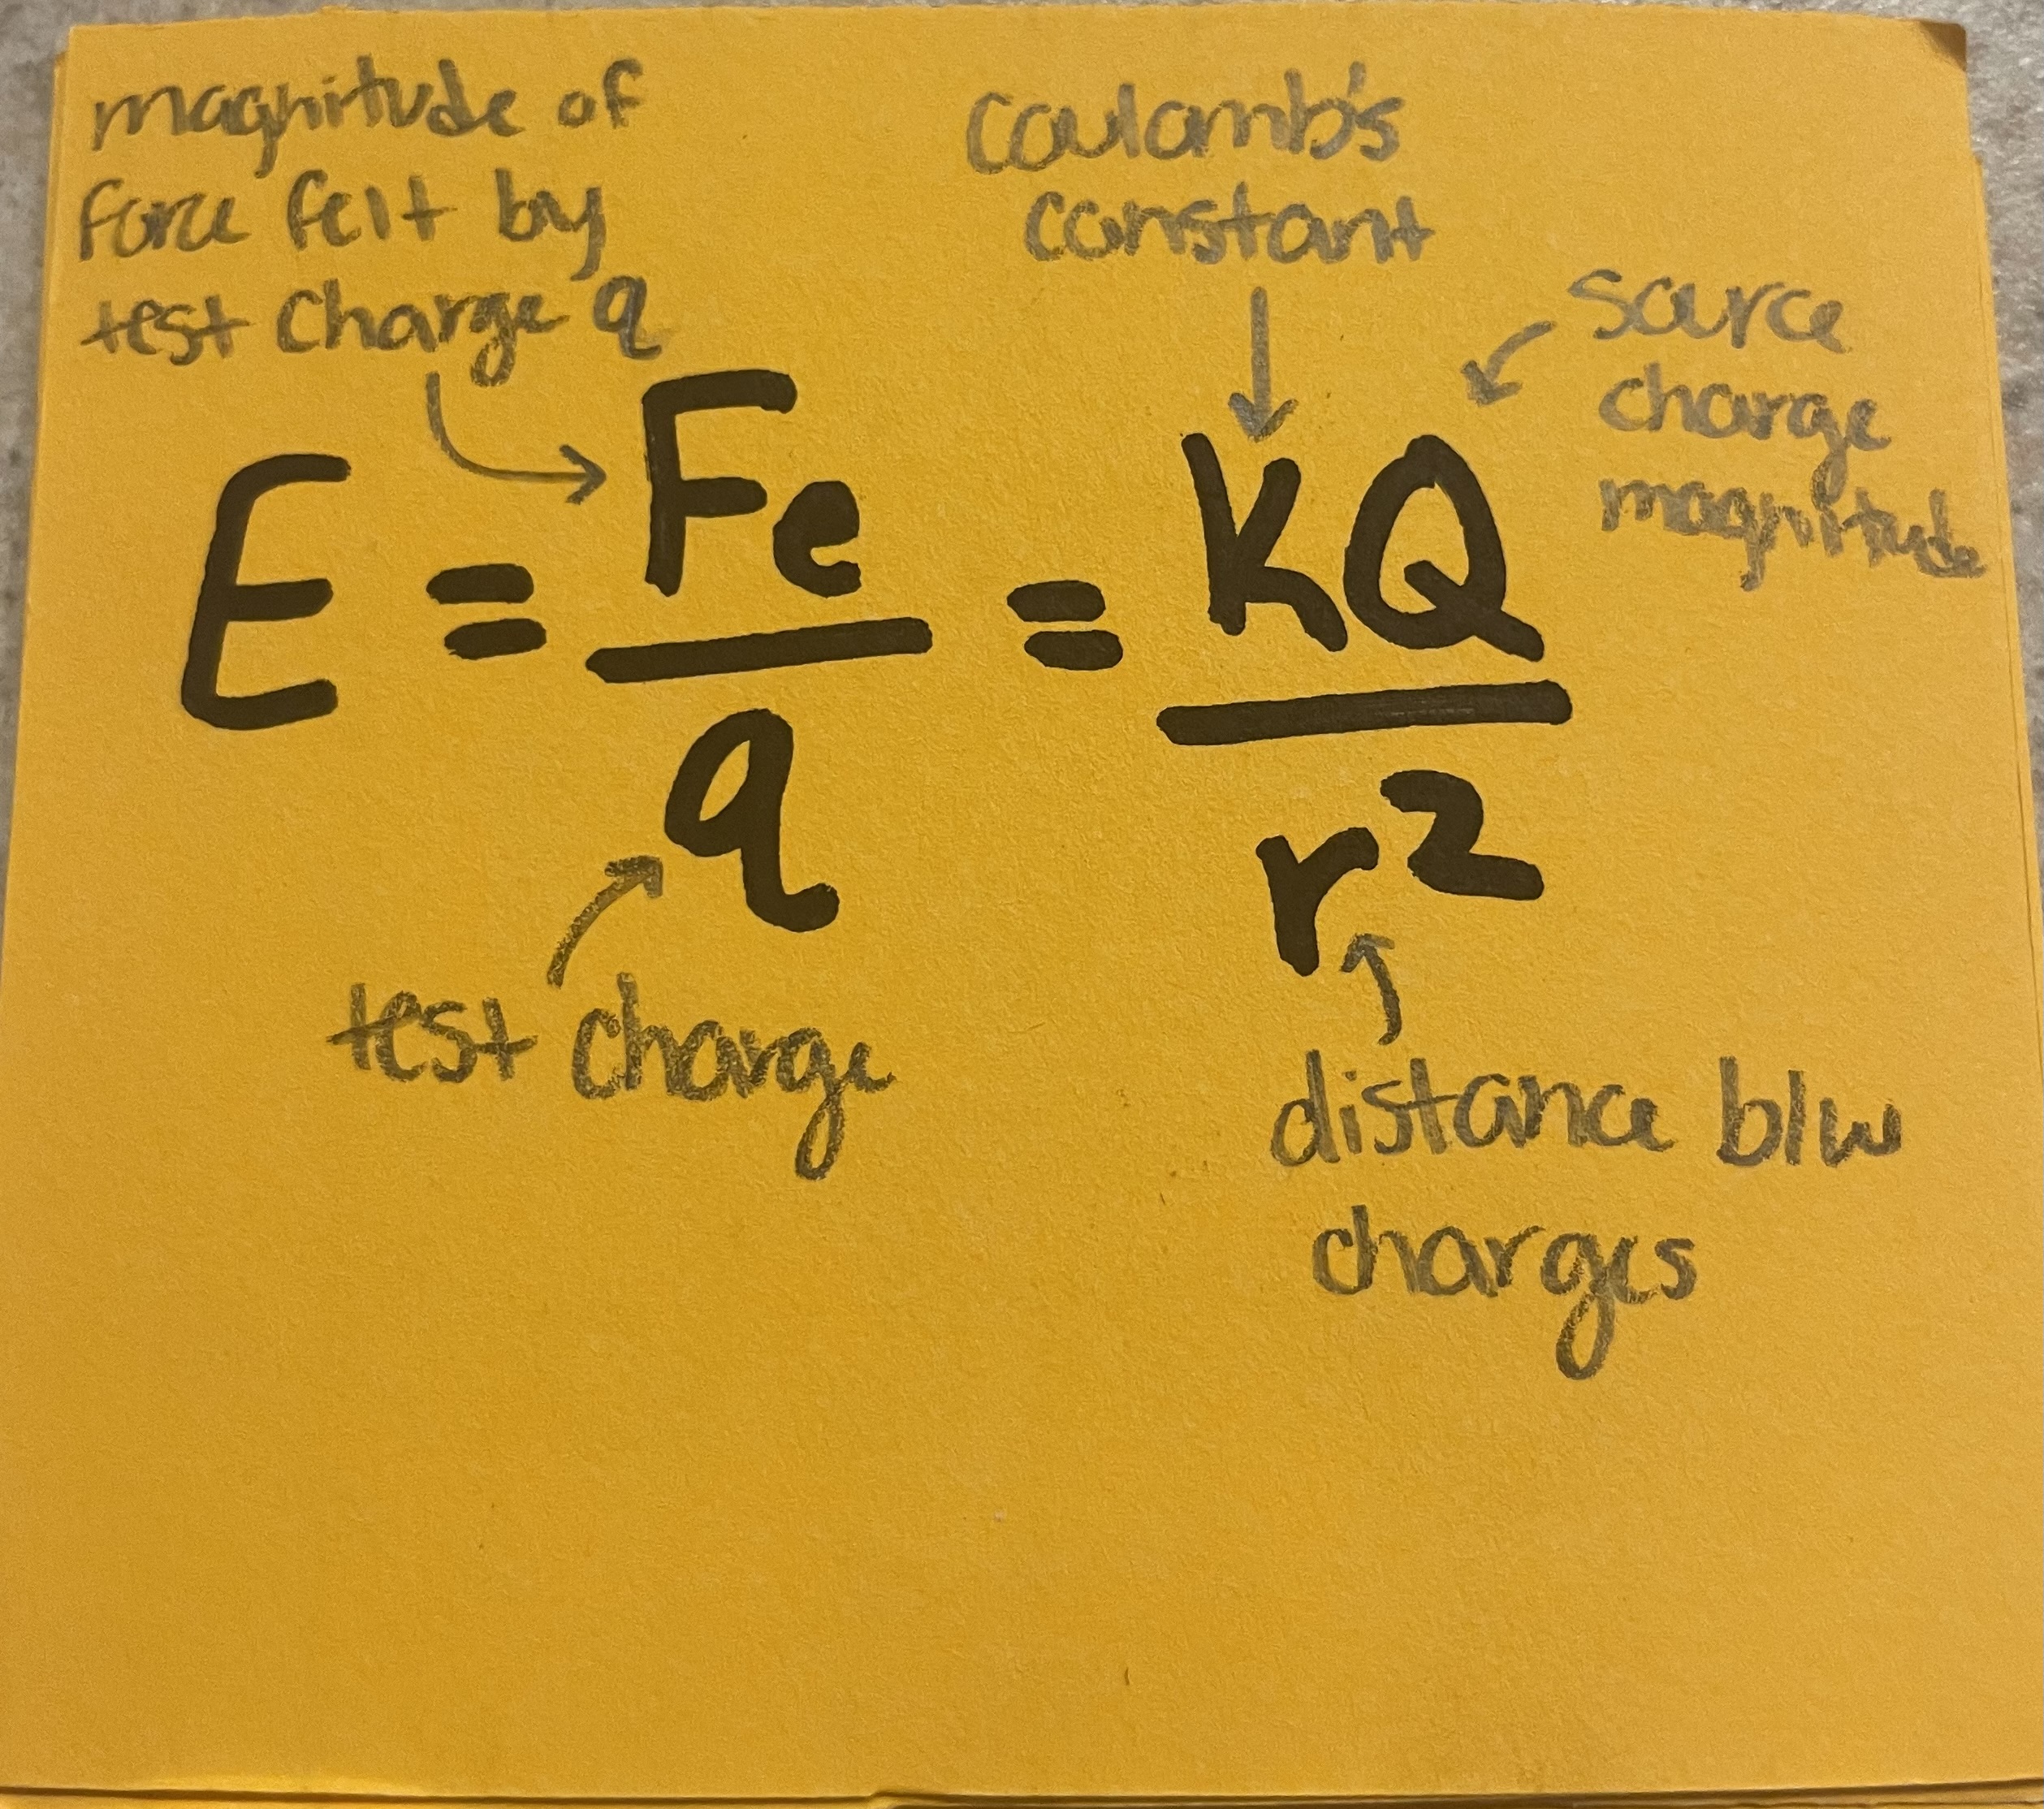 magnitude of
force felt by
test charge q
Coulomb's
constant
source
charge
magnitude
E = Fe/q = KQ/r²
test charge
distance b/w
charges